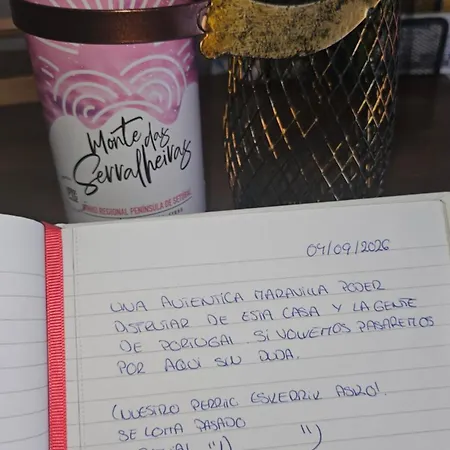 Monte das
Serralheiras
VINHO REGIONAL PENÍNSULA DE SETÚBAL
09/09/2026
UNA AUTENTICA MARAVILLA PODER
DISFRUTAR DE ESTA CASA Y LA GENTE
DE PORTUGAL. SI VOLVEMOS PASAREMOS
POR AQUI SIN DUDA.
(NUESTRO
SE LO HA PASADO